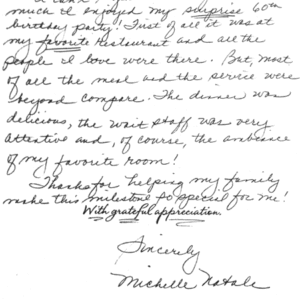 much I enjoyed my surprise 60th
birthday party! First of all it was at
my favorite restaurant and all the
people I love were there. But, most
of all the meal and the service were
beyond compare. The dinner was
delicious, the wait staff was very
attentive and, of course, the ambiance
of my favorite room!
Thanks for helping my family
make this milestone so special for me!
With grateful appreciation
Sincerely
Michelle Natale